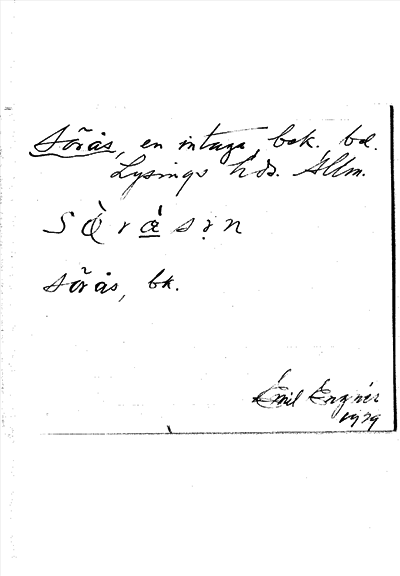 Sörås, en intaga, bek. bd.
Lysings hds. Allm.
S œ̀ r œ̀ s ə n
Sörås, bk.
Emil Enznér
1929